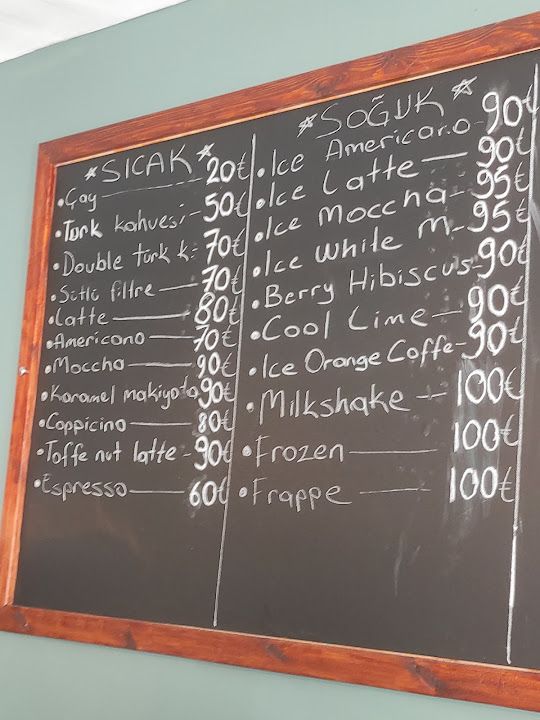 *SICAK*
•Çay 20₺
•Türk kahvesi - 50₺
•Double türk k: 70₺
•Sütlü filtre 70₺
•Latte 80₺
•Americano 70₺
•Moccha 90₺
•Karamel makiyato 90₺
•Cappicino 80₺
•Toffe nut latte - 90₺
•Espresso 60₺
*SOĞUK*
•Ice Americano 90₺
•Ice Latte 90₺
•Ice Moccha 95₺
•Ice White M. 95₺
•Berry Hibiscus 90₺
•Cool Lime 90₺
•Ice Orange Coffe 90₺
•Milkshake 100₺
•Frozen 100₺
•Frappe 100₺